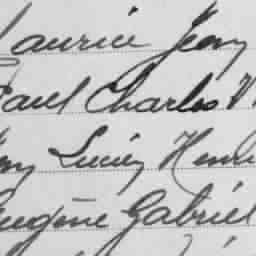 Maurice Jean
Paul Charles V
Lucien Henri
Eugène Gabriel